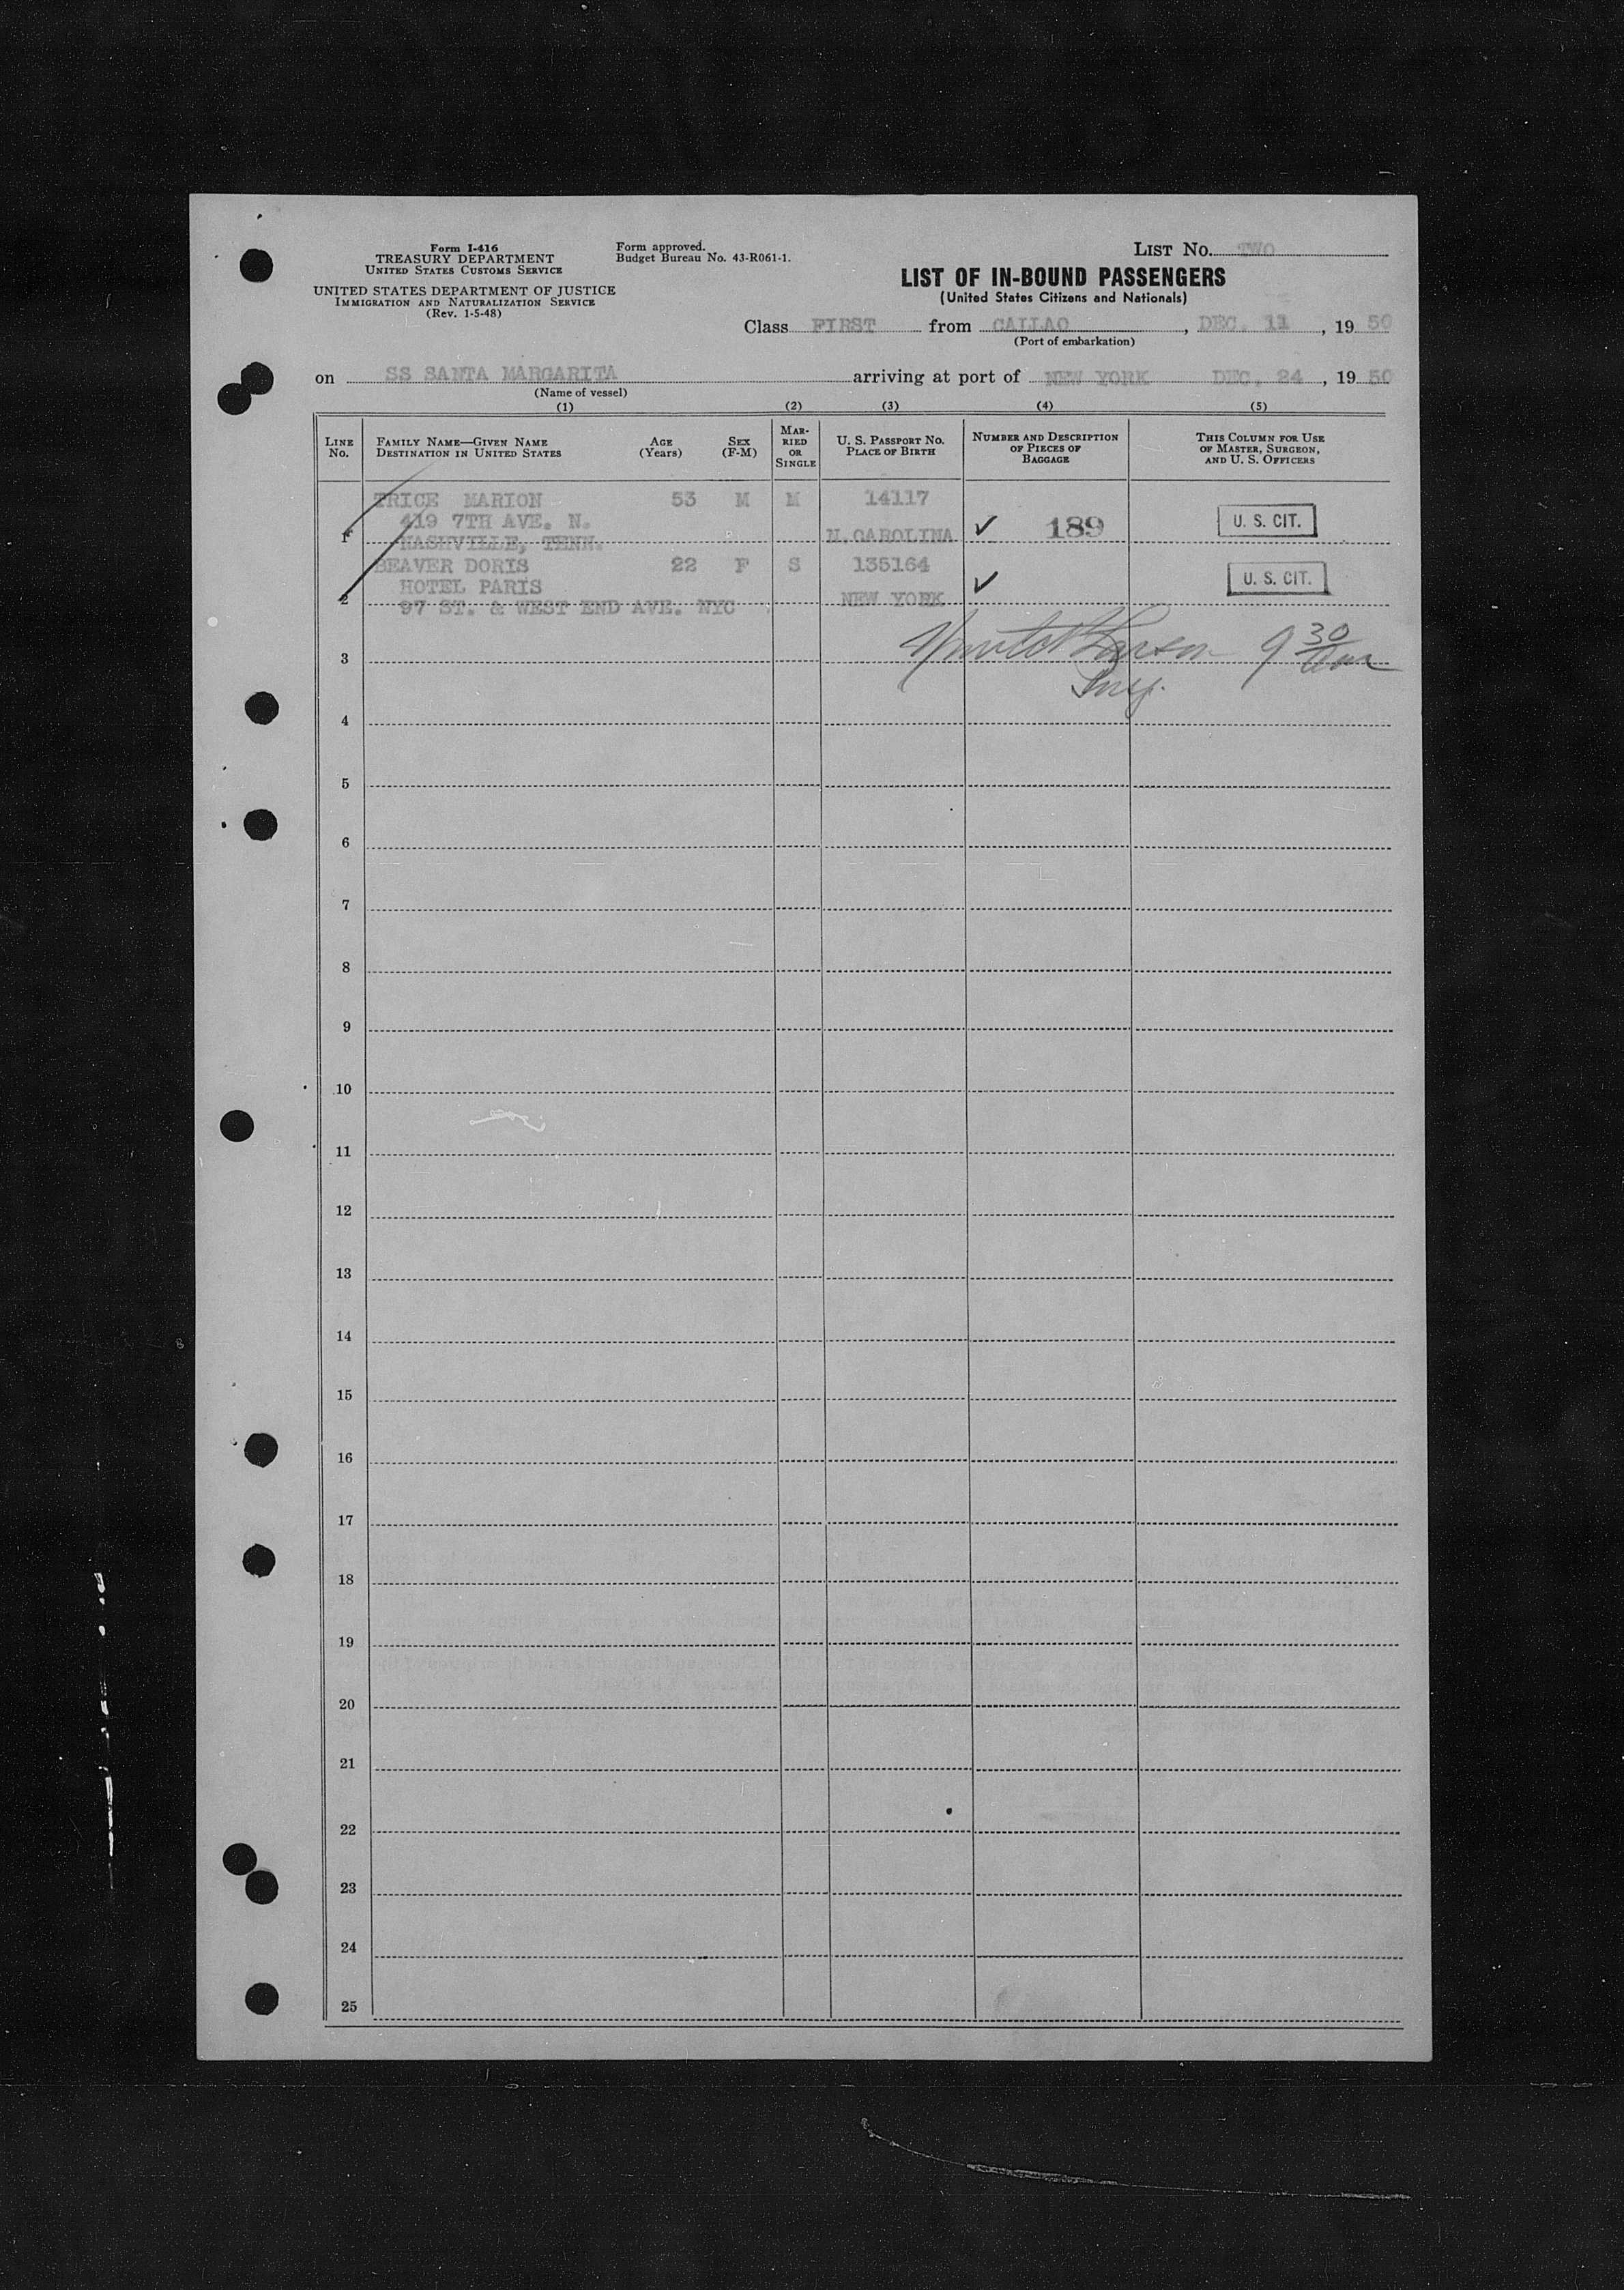 Form I-416
TREASURY DEPARTMENT
UNITED STATES CUSTOMS SERVICE
UNITED STATES DEPARTMENT OF JUSTICE
IMMIGRATION AND NATURALIZATION SERVICE
(Rev. 1-5-48)
Form approved.
Budget Bureau No. 43-R061-1.
LIST NO. TWO
LIST OF IN-BOUND PASSENGERS
(United States Citizens and Nationals)
Class FIRST from CALLAO, DEC. 11, 19 50
(Port of embarkation)
on SS SANTA MARGARITA arriving at port of NEW YORK DEC. 24, 19 50
(Name of vessel)
(1) (2) (3) (4) (5)
LINE No.
FAMILY NAME—GIVEN NAME
DESTINATION IN UNITED STATES
AGE
(Years)
SEX
(F-M)
MAR-
RIED
OR
SINGLE
U. S. PASSPORT NO.
PLACE OF BIRTH
NUMBER AND DESCRIPTION
OF PIECES OF
BAGGAGE
THIS COLUMN FOR USE
OF MASTER, SURGEON,
AND U. S. OFFICERS
TRICE MARION 53 M M 14117
419 7TH AVE. N. 189 U. S. CIT.
1 NASHVILLE, TENN. N.CAROLINA ✓
BEAVER DORIS 22 F S 135164
HOTEL PARIS ✓ U. S. CIT.
2 97 ST. & WEST END AVE. NYC NEW YORK
9 30
3
Insp.
4
5
6
7
8
9
10
11
12
13
14
15
16
17
18
19
20
21
22
23
24
25